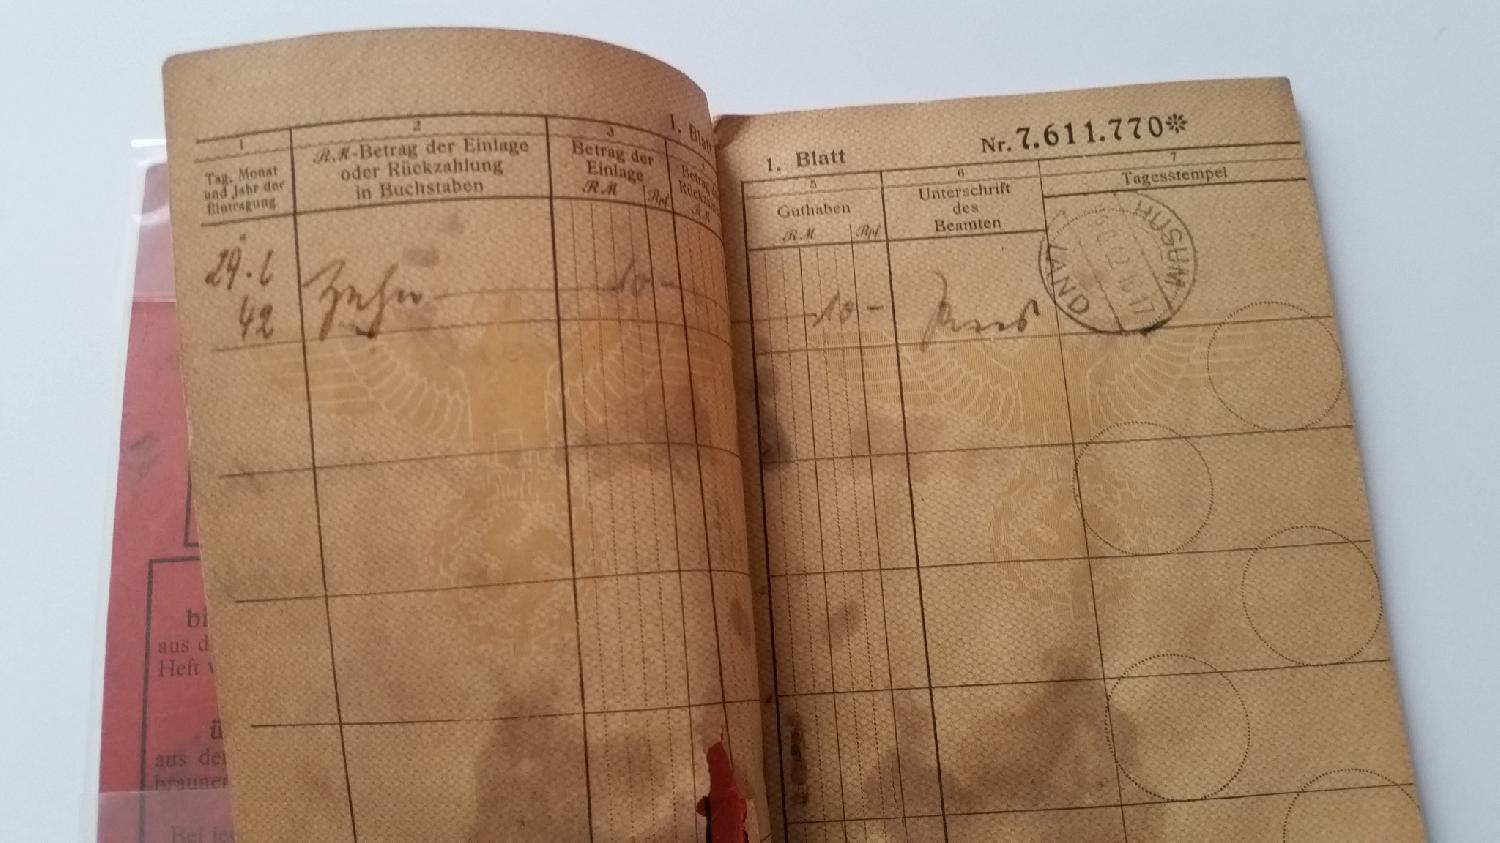 1. Blatt
1
Tag, Monat
und Jahr der
Eintragung
2
RM-Betrag der Einlage
oder Rückzahlung
in Buchstaben
3
Betrag der
Einlage
RM Rpf
Betrag der
RM
29.6
42
Zehn 10 -
bi
aus d
Heft v
ü
aus de
braune
Bei je
1. Blatt
Nr. 7.611.770*
5
Guthaben
RM Rpf
6
Unterschrift
des
Beamten
7
Tagesstempel
10 -
HUSUM
LAND